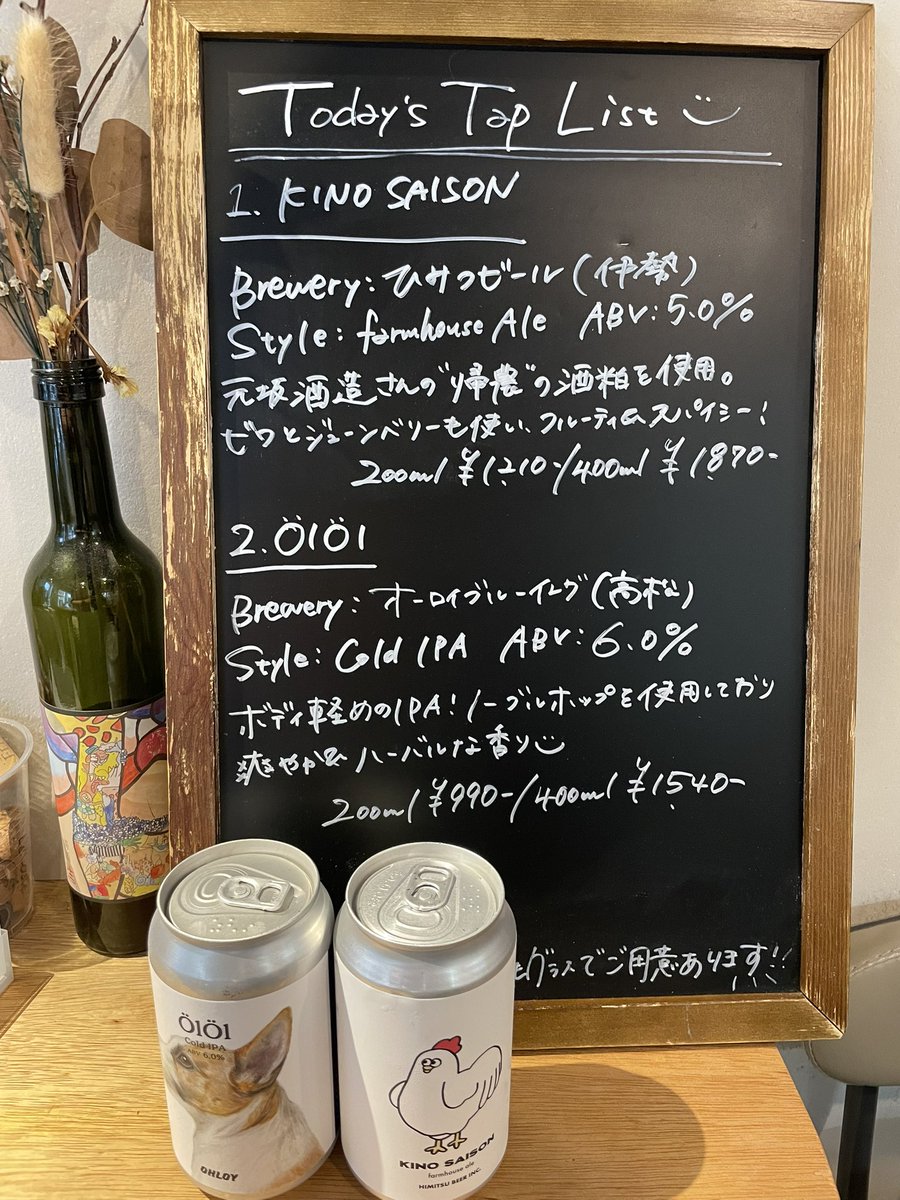 Today's Tap List
1. KINO SAISON
Brewery: ひみつビール (伊勢)
Style: farmhouse Ale ABV: 5.0%
元坂酒造さんの"帰農"の酒粕を使用。
ビワとジューンベリーも使い、フルーティ&スパイシー!
200ml ¥1,210-/400ml ¥1,870-
2. ÖlÖl
Brewery: オーロイブルーイング (高松)
Style: Cold IPA ABV: 6.0%
ボディ軽めのIPA! ノーブルホップを使用しており
爽やか& ハーバルな香り
200ml ¥990-/400ml ¥1,540-
グラスでご用意あります!!
ÖlÖl
Cold IPA
ABV 6.0%
OHLOY
KINO SAISON
farmhouse ale
HIMITSU BEER INC.